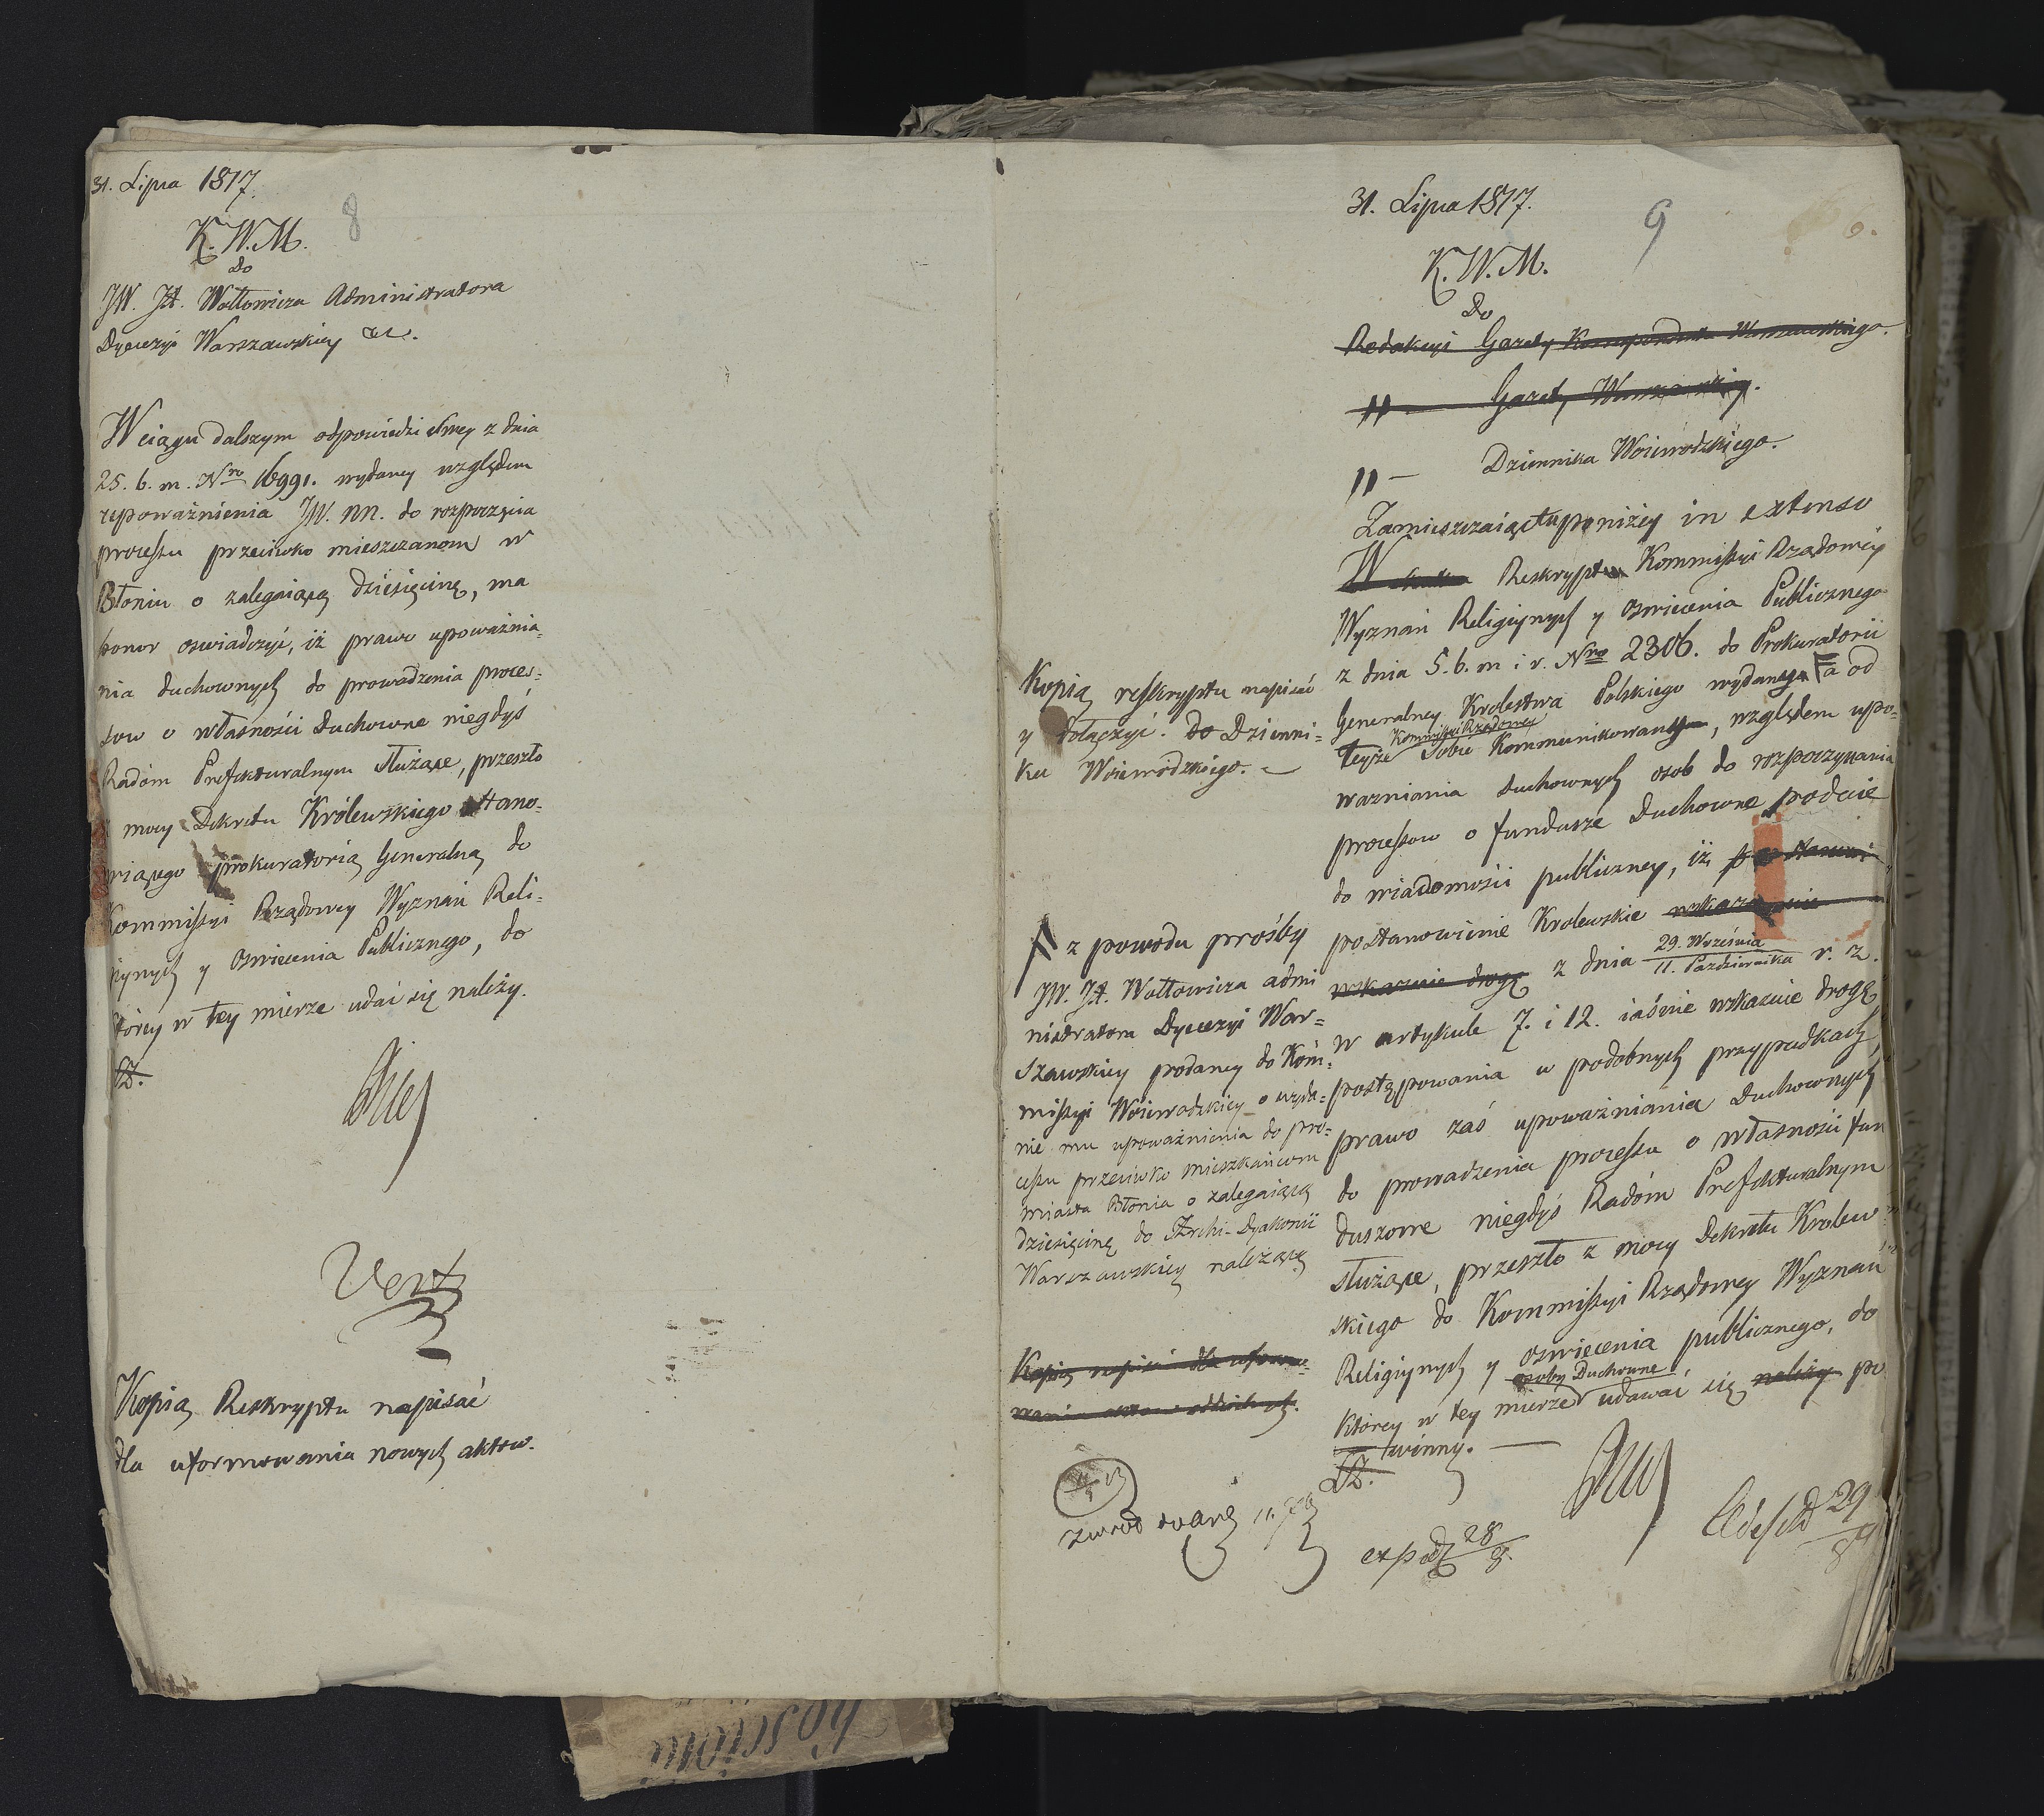 31. Lipca 1817.
8
K. W. M.
Do
JW. JX. Wołłowicza Administratora
Dyecezyi Warszawskiey etc.
W ciągu dalszym odpowiedzi swey z dnia
25. b. m. Nro 16991. wydaney względem
upoważnienia JW. nn. do rozpoczęcia
processu przeciwko mieszczanom w
Błoniu o zalegaiącą dziesięcinę, ma
honor oświadczyć, iż prawo upoważnia=
nia duchownych do prowadzenia proces=
sow o własności Duchowne niegdyś
Radóm Prefekturalnym służące, przeszło
z mocy Dekretu Królewskiego stano=
wiącego prokuratorią Generalną do
Kommissyi Rządowey Wyznań Reli=
giynych y Oswiecenia Publicznego, do
którey w tey mierze udać się należy.
Vert
Kopią Reskryptu napisać
dla uformowania nowych aktow.
31. Lipca 1817.
9
K. W. M.
Do
Redakcyi Gazety Korrespondenta Warszawskiego.
" — Gazety Warszawskiey.
" — Dziennika Woiewodzkiego.
Zamieszczaiąc tu poniżey in extenso
W skutek Reskryptu Kommissyi Rządowey
Wyznań Religiynych y Oswiecenia Publicznego
z dnia 5. b. m i r. Nro 2306. do Prokuratorii
Generalney Krolestwa Polskiego wydanego F a od
Kommissyi Rządowey
teyże Sobie Kommunikowany, względem upo=
wazniania duchownych osob do rozpoczynania
processow o fundusze Duchowne podaie
do wiadomości publiczney, iż
postanowienie Krolewskie wskazuie
wskazuie drogę z dnia 29. Września / 11. Października r. z.
w artykule 7. i 12. iaśnie wskazuie drogę
postępowania w podobnych przypadkach,
prawo zaś upoważniania Duchownych
do prowadzenia processu o własności fun
duszowe niegdyś Radóm Prefekturalnym
służące, przeszło z mocy Dekretu Krolew
skiego do Kommissyi Rządowey Wyznań
Religiynych y oswiecenia publicznego, do
osoby Duchowne
ktorey w tey mierze udawać się należy po
winny. —
Kopią reskryptu napisać
y dołączyć. do Dzienni=
ka Woiewódzkiego. —
F z powodu prośby
JW. JX. Wołłowicza admi
nistratora Dyecezyi War=
szawskiey podaney do Kom=
missyi Woiewodzkiey o wyda=
nie mu upoważnienia do pro=
cessu przeciwko mieszkańcom
miasta Błonia o zalegaiącą
dziesięcinę do Archi-Dyakonii
Warszawskiey należącą
Kopią napisać dla uformo=
wania aktow oddzielnych.
exped 28/8.
29/8